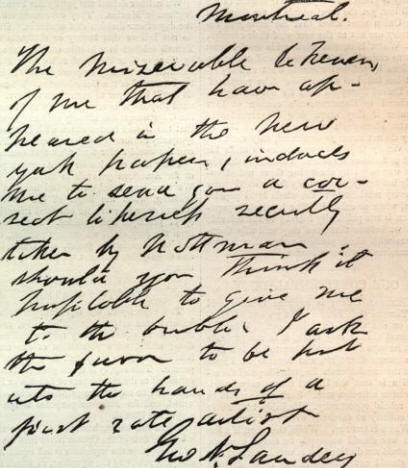 Montreal.
The miserable likenesses
of me that have ap-
peared in the New
York papers, induces
me to send you a cor-
rect likeness recently
taken by Nottman.
should you think it
profitable to give me
to the public I ask
the favor to be put
into the hands of a
first rate artist
Geo N. Sanders